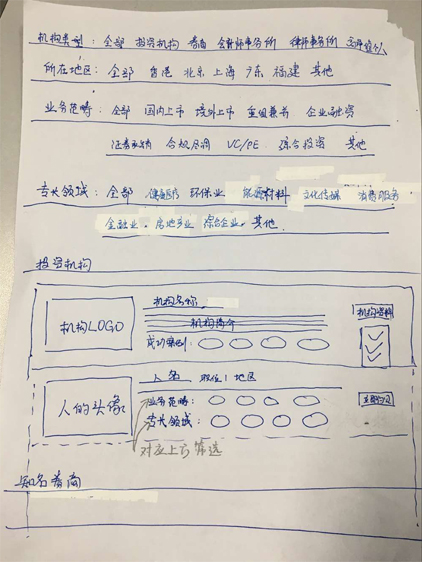 机构类型：全部 投资机构 券商 会计师事务所 律师事务所
所在地区：全部 香港 北京 上海 广东 福建 其他
业务范畴：全部 国内上市 境外上市 重组兼并 企业融资
证券承销 合规风调 VC/PE 综合投资 其他
专长领域：全部 保健医疗 环保业 能源材料 文化传媒 消费及服务
金融业 房地产业 综合企业 其他
投资机构
机构LOGO
机构名称
机构简介
成功案例：
机构资料
人的头像
人名 职位 | 地区
业务范畴：
专长领域：
对应上方筛选
知名券商